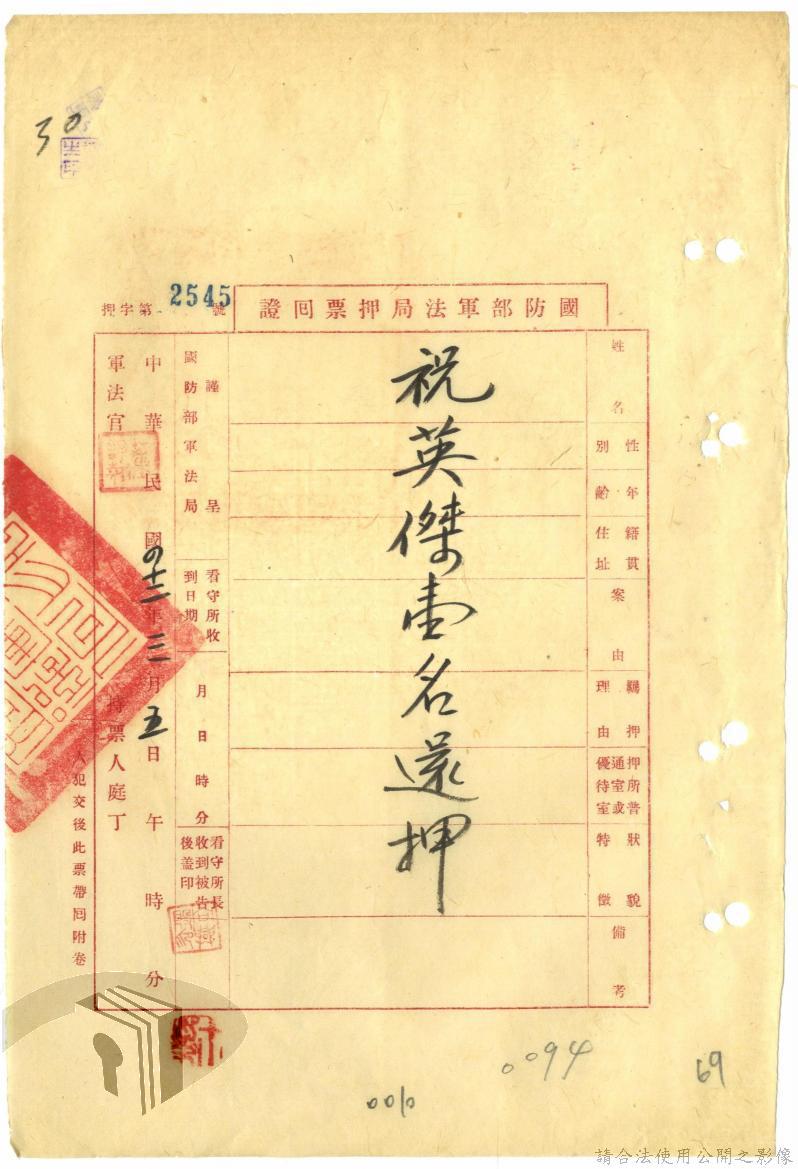 30
國防部軍法局押票回證
押字第2545號
姓名
性別
年齡
籍貫
住址
案由
羈押理由
押所普通室或優待室
特徵
狀貌
備考
祝英傑壹名還押
謹呈
國防部軍法局
看守所收到日期
月日時分
看守所長收到被告後蓋印
中華民國四十二年三月五日午時分
軍法官
持票人庭丁
人犯交後此票帶回附卷
0094
69
0010
請合法使用公開之影像